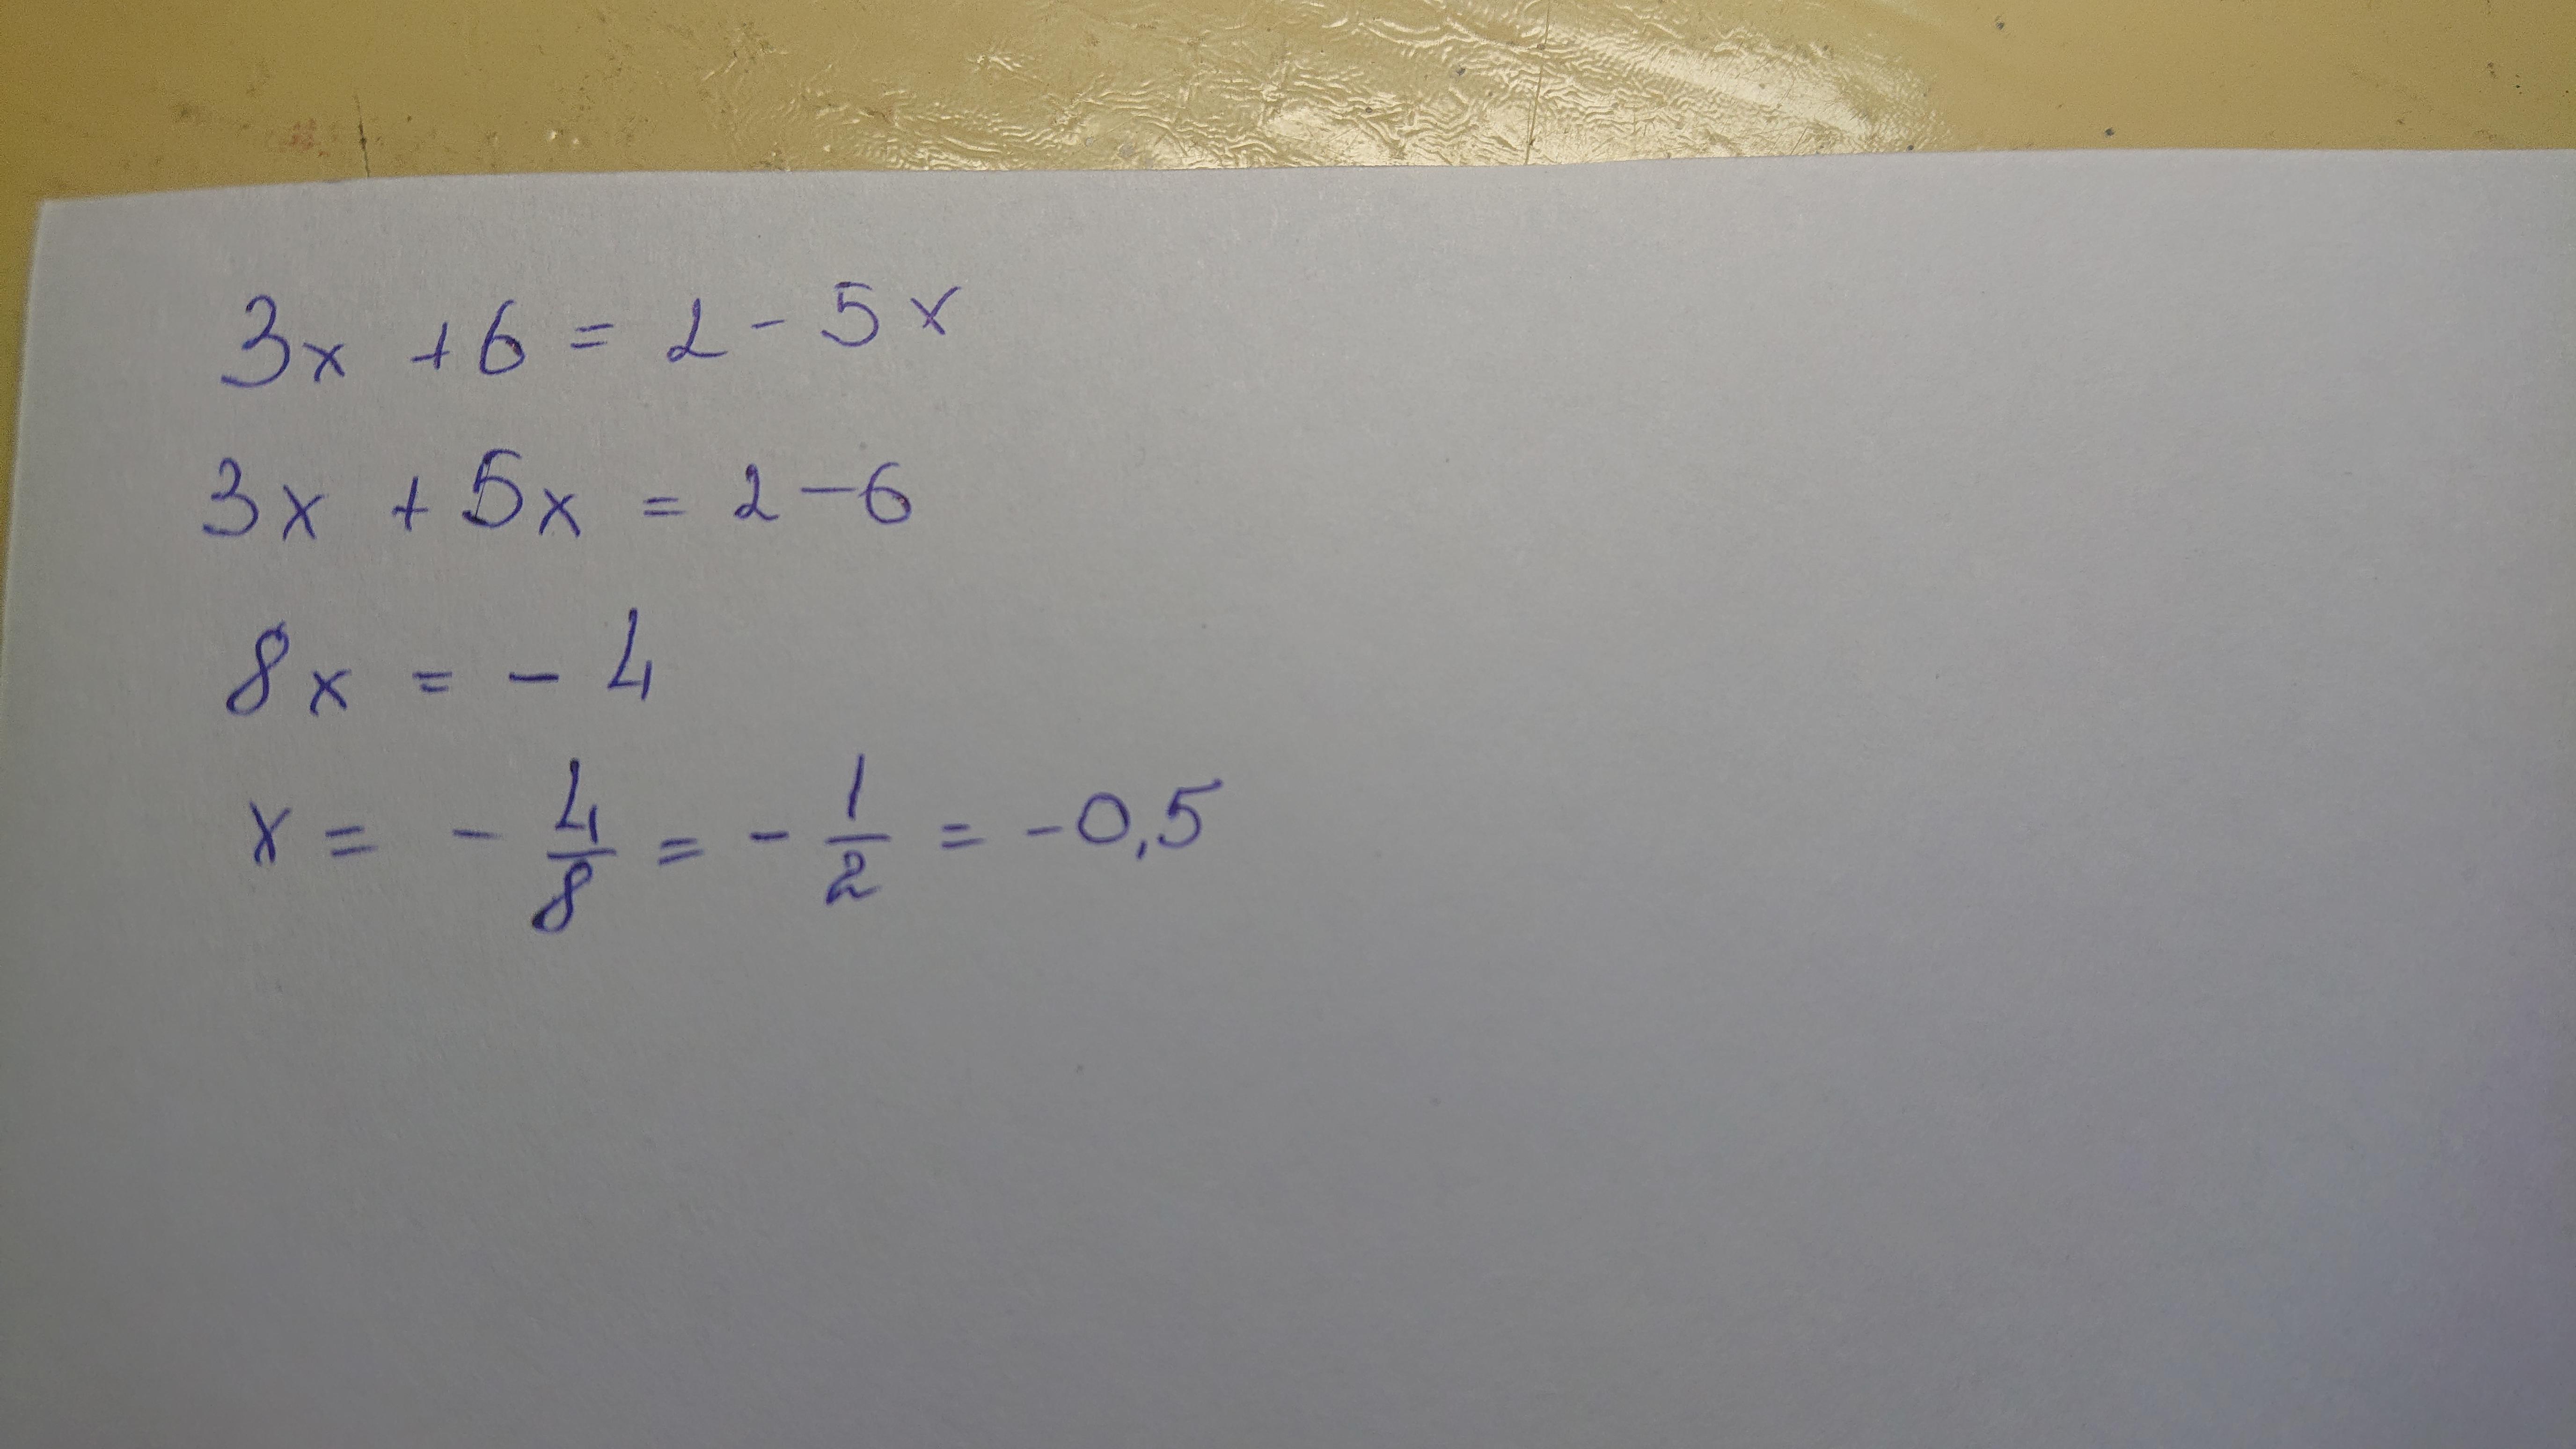 3x + 6 = 2 - 5x
3x + 5x = 2 - 6
8x = - 4
x = - 4/8 = - 1/2 = -0,5